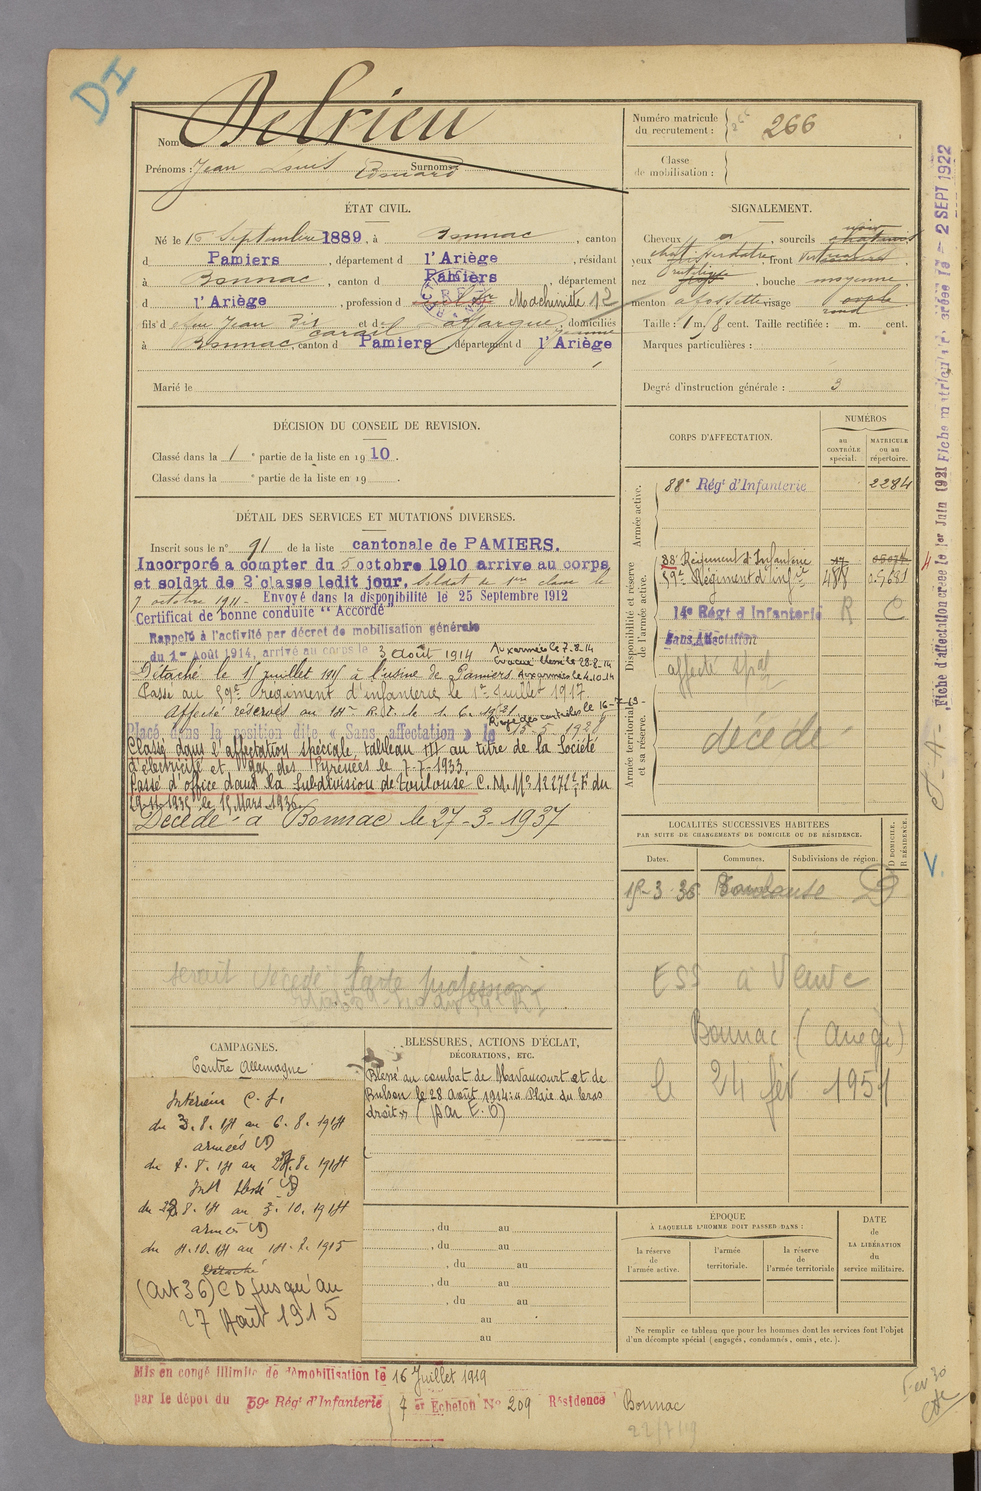 DI
Nom Delrieu
Prénoms : Jean Louis Edouard Surnoms :
Numéro matricule
du recrutement : 266
Classe
de mobilisation :
ÉTAT CIVIL.
Né le 16 Septembre 1889, à Bonnac, canton
d Pamiers, département d l'Ariège, résidant
à Bonnac, canton d Pamiers, département
d l'Ariège, profession d Machiniste 12
fils d feu Jean et de Lafargue, domiciliés
à Bonnac, canton d Pamiers, département d l'Ariège
Marié le
SIGNALEMENT.
Cheveux noir, sourcils chatains
yeux verdatre, front
nez, bouche moyenne
menton à fossette visage rond
Taille : 1 m, 8 cent. Taille rectifiée : m. cent.
Marques particulières :
Degré d'instruction générale : 3
DÉCISION DU CONSEIL DE REVISION.
Classé dans la 1e partie de la liste en 1910.
Classé dans la e partie de la liste en 19 .
CORPS D'AFFECTATION.
NUMÉROS
au
CONTRÔLE
spécial.
MATRICULE
ou au
répertoire.
Armée active.
88e Régt d'Infanterie 2284
Disponibilité et réserve
de l'armée active.
88e Régiment d'Infanterie
59e Régiment d'infie 488
14e Régt d Infanterie R C
Sans Affectation
affecté spal
Armée territoriale
et sa réserve.
décédé
DÉTAIL DES SERVICES ET MUTATIONS DIVERSES.
Inscrit sous le n° 91 de la liste cantonale de PAMIERS.
Incorporé a compter du 5 octobre 1910 arrive au corps
et soldat de 2e classe ledit jour. Soldat de 1re classe le
7 octobre 1911 - Envoyé dans la disponibilité le 25 Septembre 1912
Certificat de bonne conduite "Accordé"
Rappelé à l'activité par décret de mobilisation générale
du 1er Août 1914, arrivé au corps le 3 Août 1914
Aux armées le 7-8-14
Evacué blessé le 28-8-14
Aux armées le 4-10-14
Détaché le 15 juillet 1915 à l'usine de Pamiers.
Passé au 59e régiment d'infanterie le 1er Juillet 1917.
Affecté réserves au 14e R.I. le 1.6.1921
Rayé des controles le 16-7-
Placé dans la position dite « Sans affectation » le 15-5-192
Classé dans l'affectation spéciale, tableau III au titre de la Société
d'électricité et gaz des Pyrénées le 7-7-1933.
Passé d'office dans la Subdivision de Toulouse C.M. N° 12271 F du
29-11-1935 le 15 Mars 1936.
Décédé à Bonnac le 27-3-1937
serait décédé Carte profession
LOCALITÉS SUCCESSIVES HABITÉES
PAR SUITE DE CHANGEMENTS DE DOMICILE OU DE RÉSIDENCE.
Dates. Communes. Subdivisions de région. D DOMICILE. R RÉSIDENCE.
15-3 36 Toulouse D
ESS à Veuve
Bonnac (Ariège)
le 24 fév 1951
CAMPAGNES.
Contre Allemagne
Intérieur C.S.
du 3.8.14 au 6.8.1914
armées CD
du 7.8.14 au 28.8.1914
Int blessé CD
du 29.8.14 au 3.10.1914
armées CD
du 4.10.14 au 14.7.1915
Détaché
(art 36) CD jusqu'au
27 Août 1915
BLESSURES, ACTIONS D'ÉCLAT,
DÉCORATIONS, ETC.
Blessé au combat de Ravaucourt et de
Bulson le 28 Août 1914 : « Plaie du bras
droit » (par E.O)
, du au
, du au
, du au
, du au
, du au
au
au
ÉPOQUE
À LAQUELLE L'HOMME DOIT PASSER DANS :
la réserve
de
l'armée active.
l'armée
territoriale.
la réserve
de
l'armée territoriale
DATE
de
LA LIBÉRATION
du
service militaire.
Ne remplir ce tableau que pour les hommes dont les services font l'objet
d'un décompte spécial (engagés, condamnés, omis, etc.).
Mis en congé illimité de démobilisation le 16 Juillet 1919
par le dépot du 59e Régt d'Infanterie 7 er Echelon N° 209 Résidence Bonnac
22/7/19
Fiche d'affectation créée le 1er Juin 1921 Fiche matriculaire créée le - 2 SEPT 1922